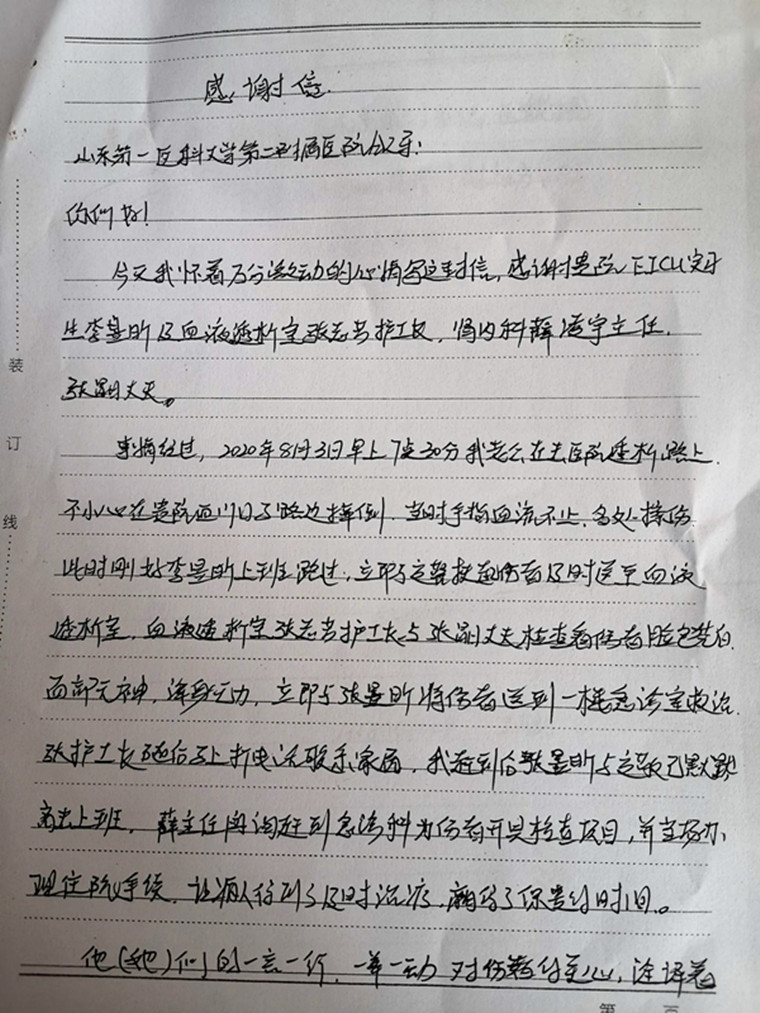 感谢信
山东第一医科大学第二附属医院领导:
你们好!
今天我怀着万分激动的心情写这封信,感谢贵院EICU实习
生李昱昕及血液透析室张志芳护士长,肾内科薛 宇主任,
张副大夫。
事情经过,2020年8月31日早上7点30分我老公在去医院透析路上
不小心在贵院西门口马路边摔倒,当时手指血流不止,多处擦伤
此时刚好李昱昕上班路过,立即与 搀扶起伤者及时送至血液
透析室,血液透析室张志芳护士长与张副大夫检查看伤者脸色苍白
面部无神,浑身无力,立即与张昱昕将伤者送到一楼急诊室救治
张护士长随后马上打电话联系家属,我赶到后张昱昕与 已默默
离去上班,薛主任闻询赶到急诊科为伤者开具检查项目,并立场办
理住院手续,让病人得到了及时治疗,赢得了保贵的时间。
他(她)们的一言一行,一举一动对伤者 ,诠译着
装
订
线
第 页